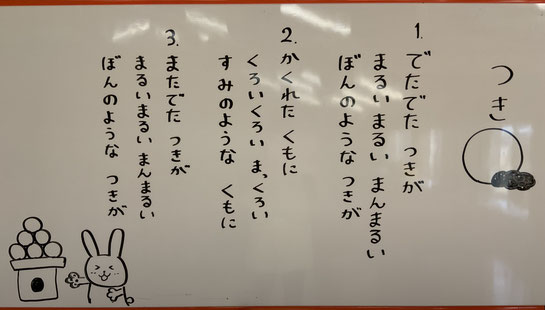 つき
1. でたでた つきが
まるいまるい まんまるい
ぼんのような つきが
2. かくれた くもに
くろいくろい まっくろい
すみのような くもに
3. またでた つきが
まるいまるい まんまるい
ぼんのような つきが